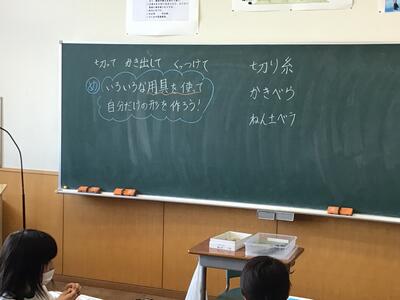 切って かき出して くっつけて
め いろいろな用具を使って
自分だけの形を作ろう!
切り糸
かきべら
ねん土ベラ